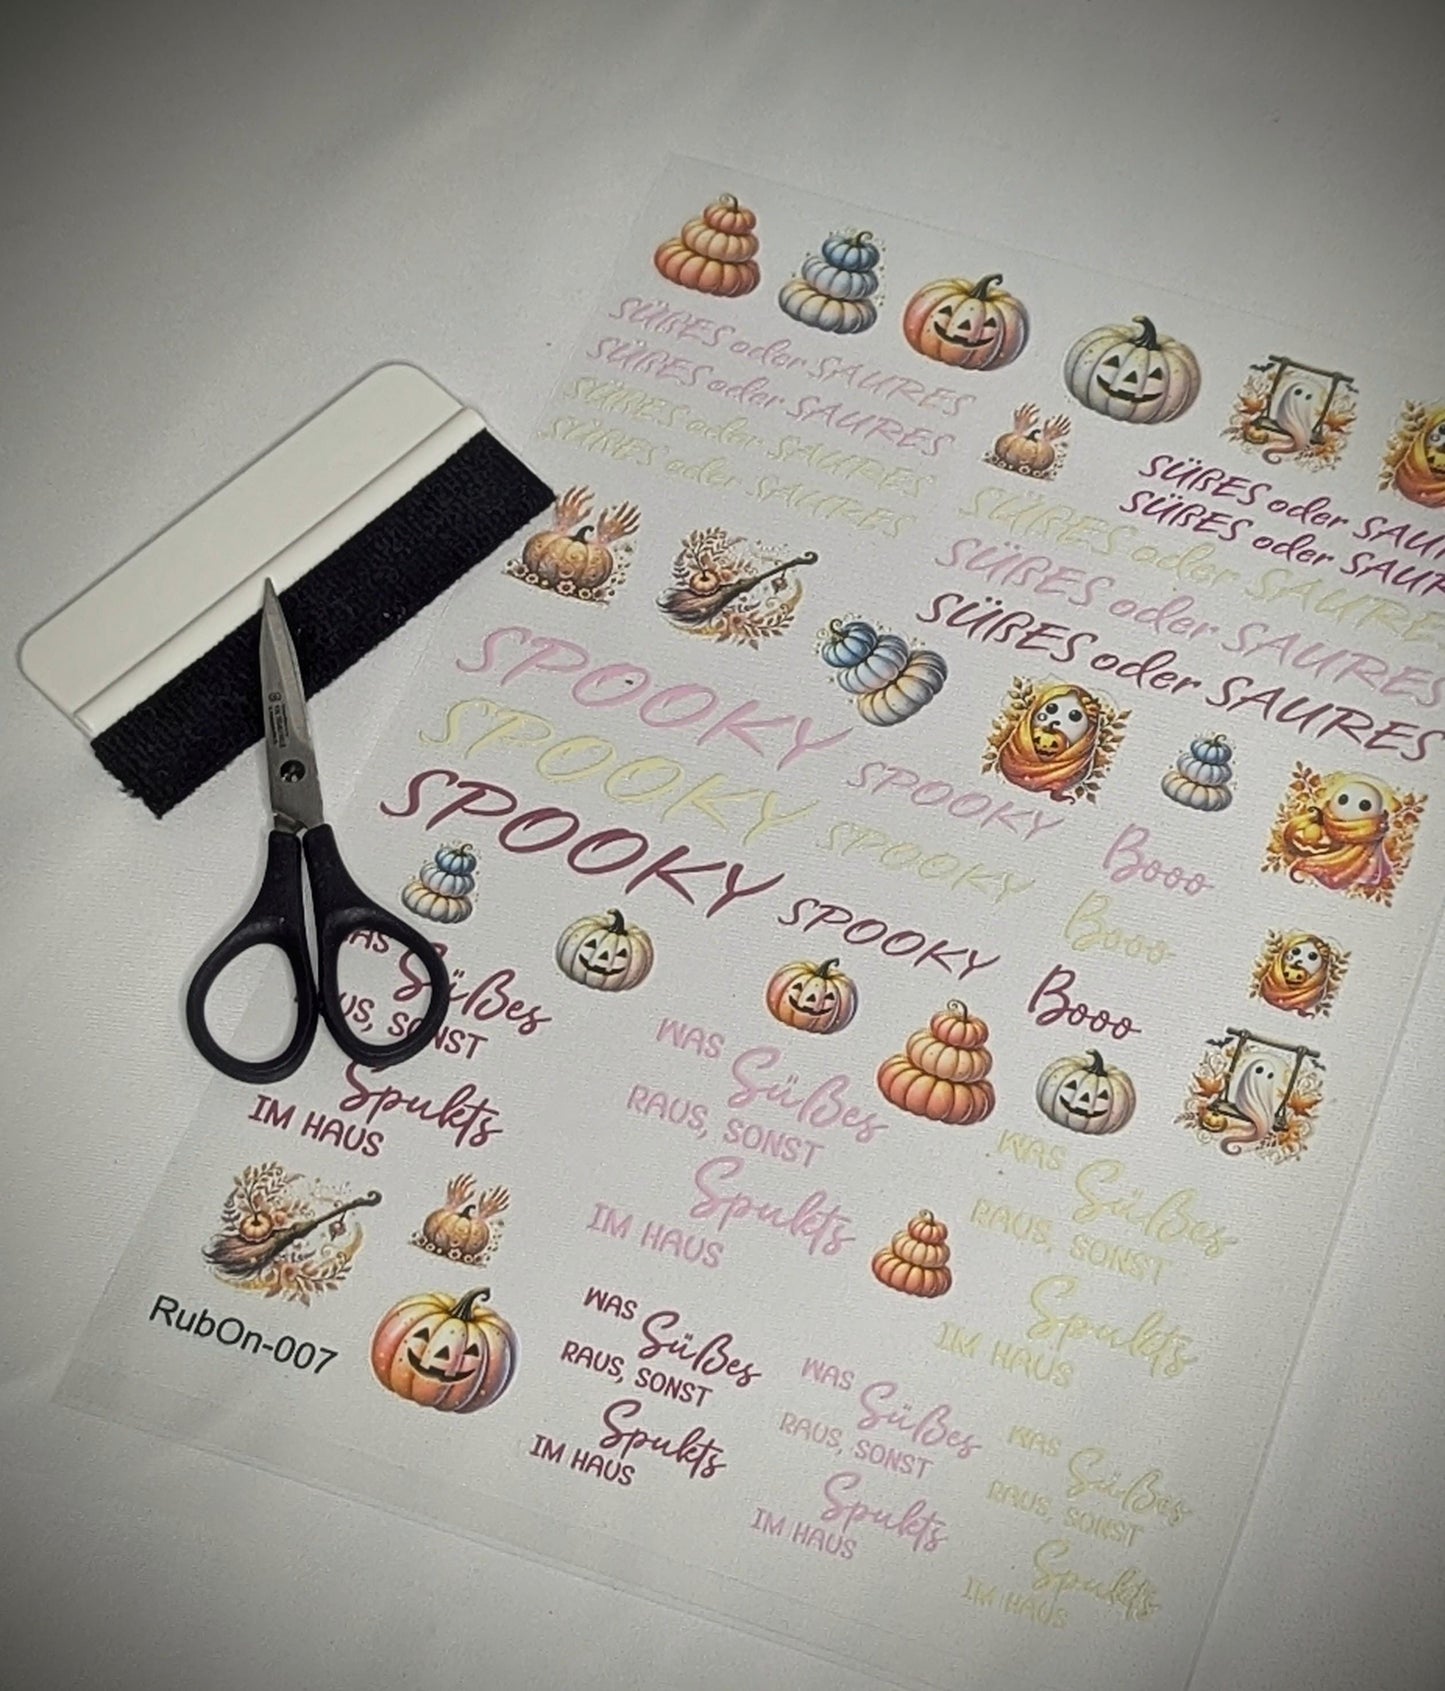 SÜßES oder SAURES
SÜßES oder SAURES
SÜßES oder SAURES
SÜßES oder SAURES
SÜßES oder
SÜßES oder
SÜßES oder
SÜßES oder SAURES
SÜßES oder SAURES
SPOOKY
SPOOKY
SPOOKY
SPOOKY
SPOOKY
SPOOKY
Booo
Booo
Booo
Süßes
Spukts
IM HAUS
WAS Süßes
RAUS, SONST
Spukts
IM HAUS
WAS Süßes
RAUS, SONST
Spukts
IM HAUS
RubOn-007
WAS Süßes
RAUS, SONST
Spukts
IM HAUS
WAS Süßes
RAUS, SONST
Spukts
IM HAUS
WAS Süßes
RAUS, SONST
Spukts
IM HAUS